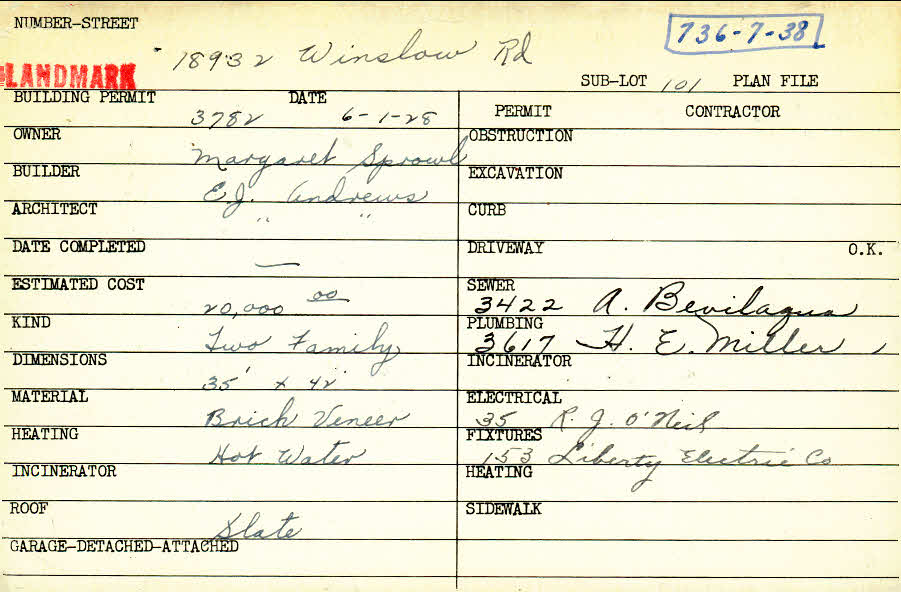 NUMBER-STREET
18932 Winslow Rd
736-7-38
LANDMARK
SUB-LOT 101 PLAN FILE
BUILDING PERMIT DATE
3782 6-1-28
PERMIT CONTRACTOR
OWNER
Margaret Sprowl
OBSTRUCTION
BUILDER
E.J. Andrews
EXCAVATION
ARCHITECT
" "
CURB
DATE COMPLETED
—
DRIVEWAY O.K.
ESTIMATED COST
20,000 00
SEWER
3422 A. Bevilaqua
KIND
Two Family
PLUMBING
3617 H. E. Miller
DIMENSIONS
35' x 42'
INCINERATOR
MATERIAL
Brick Veneer
ELECTRICAL
35 R. J. O'Neil
HEATING
Hot Water
FIXTURES
153 Liberty Electric Co
INCINERATOR
HEATING
ROOF
Slate
SIDEWALK
GARAGE-DETACHED-ATTACHED